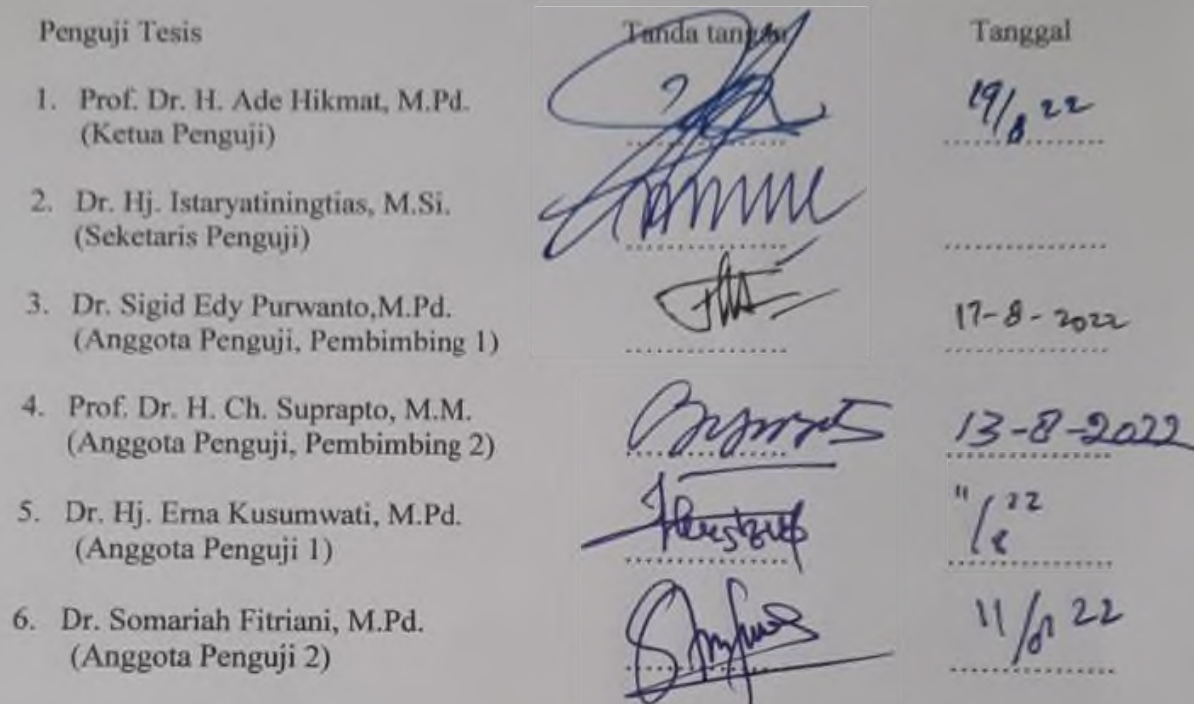 Penguji Tesis Tanda tangan Tanggal
1. Prof. Dr. H. Ade Hikmat, M.Pd. 19/8 22
(Ketua Penguji)
2. Dr. Hj. Istaryatiningtias, M.Si.
(Seketaris Penguji)
3. Dr. Sigid Edy Purwanto,M.Pd. 17-8-2022
(Anggota Penguji, Pembimbing 1)
4. Prof. Dr. H. Ch. Suprapto, M.M. 13-8-2022
(Anggota Penguji, Pembimbing 2)
5. Dr. Hj. Erna Kusumwati, M.Pd. 11/8 22
(Anggota Penguji 1)
6. Dr. Somariah Fitriani, M.Pd. 11/ 22
(Anggota Penguji 2)